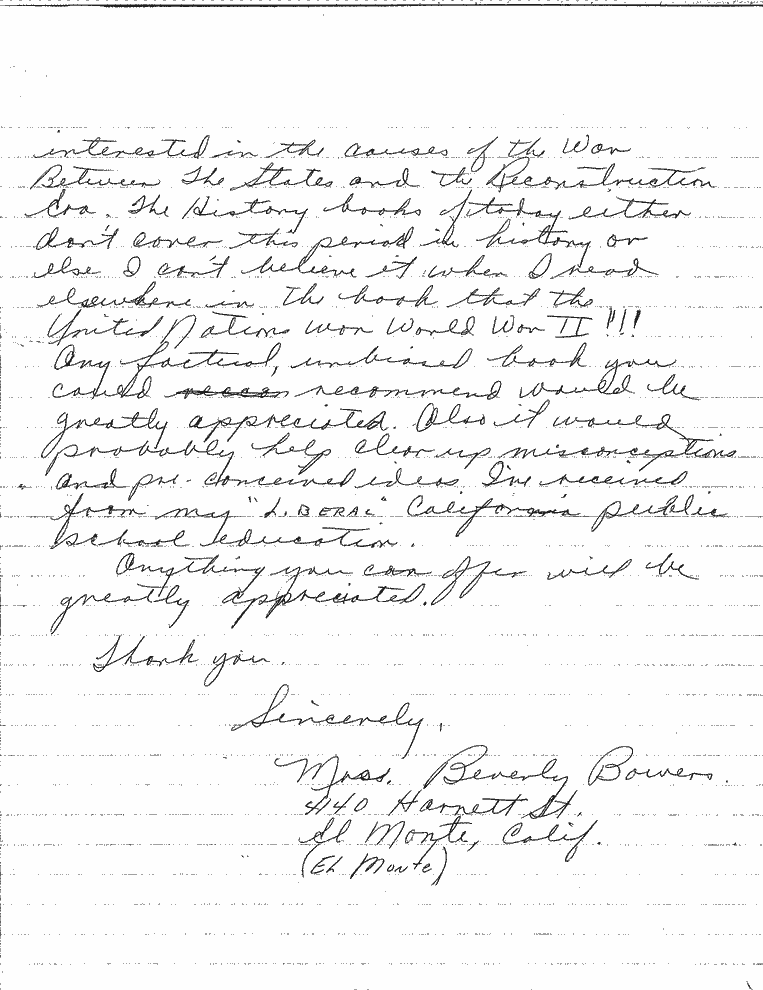 interested in the causes of the War
Between The States and the Reconstruction
Era. The History books of today either
don't cover this period in history or
else I can't believe it when I read
elsewhere in the book that the
United Nations won World War II !!!
Any factual, unbiased book you
could reccon recommend would be
greatly appreciated. Also it would
probably help clear up misconceptions
and pre-conceived ideas I've received
from my "LIBERAL" California public
school education.
Anything you can offer will be
greatly appreciated.
Thank you.
Sincerely,
Mrs. Beverly Bowers.
4140 Harnett St.
El Monte, Calif.
(El Monte)